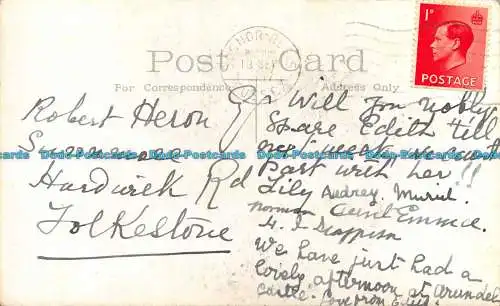 Post Card
For Correspondence
Address Only
1D
POSTAGE
BOGNOR REGIS
Robert Heron
Hardwick Rd
Folkestone
Will you
Spare Edith till
next week we can't
Part with her!!
Lily Audrey. Muriel.
Norman Aunt Emma.
We have just had a
lovely afternoon at Arundel
Castle. Love from
Dodo-Postcards Dodo-Postcards Dodo-Postcards Dodo-Postcards